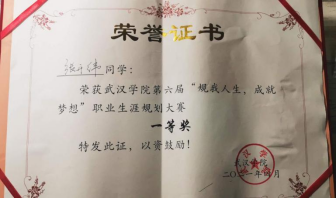 荣誉证书
同学：
荣获武汉学院第六届“规我人生，成就
梦想”职业生涯规划大赛
一等奖
特发此证，以资鼓励！
武汉学院
二〇二一年四月